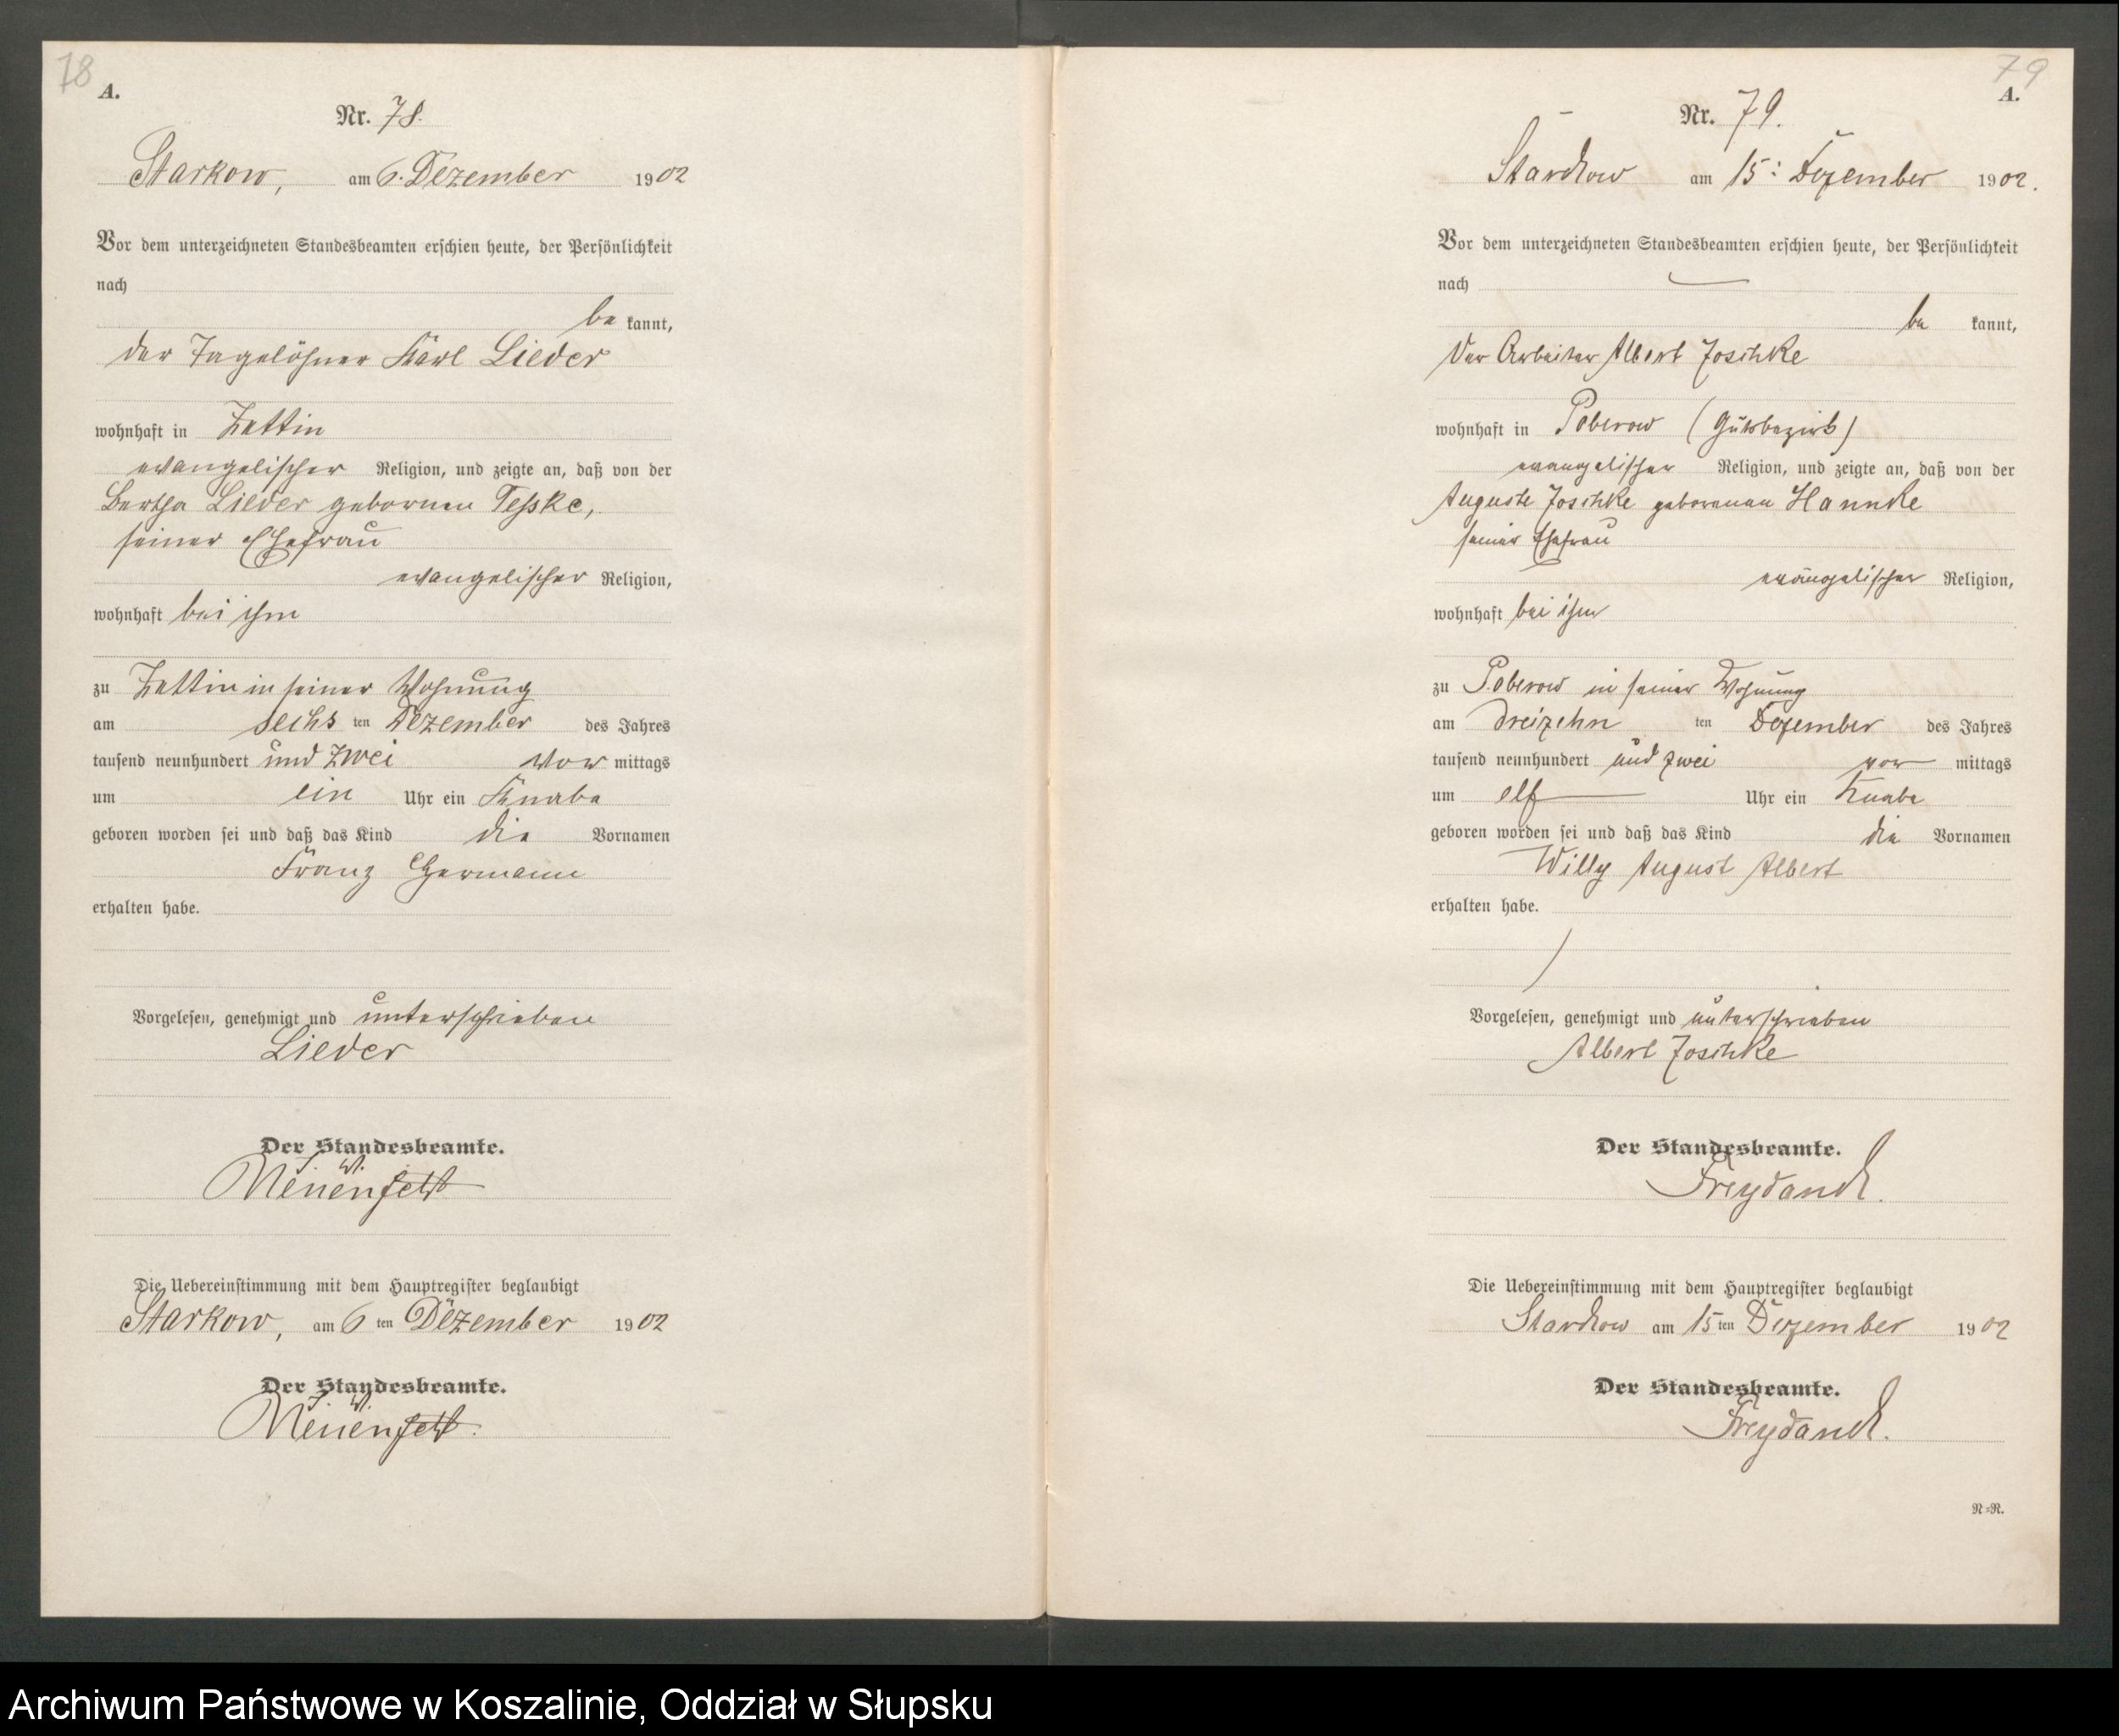 78
A.
Nr. 78.
Starkow, am 6. Dezember 1902
Vor dem unterzeichneten Standesbeamten erschien heute, der Persönlichkeit
nach
be kannt,
der Tagelöhner Karl Lieder
wohnhaft in Zettin
evangelischer Religion, und zeigte an, daß von der
Bertha Lieder gebornen Teßke,
seiner Ehefrau
evangelischer Religion,
wohnhaft bei ihm
zu Zettin in seiner Wohnung
am sechs ten Dezember des Jahres
tausend neunhundert und zwei Vor mittags
um ein Uhr ein Knabe
geboren worden sei und daß das Kind die Vornamen
Franz Hermann
erhalten habe.
Vorgelesen, genehmigt und unterschrieben
Lieder
Der Standesbeamte.
Die Uebereinstimmung mit dem Hauptregister beglaubigt
Starkow, am 6 ten Dezember 1902
Der Standesbeamte.
79
A.
Nr. 79.
Starckow am 15: Dezember 1902.
Vor dem unterzeichneten Standesbeamten erschien heute, der Persönlichkeit
nach
be kannt,
Der Arbeiter Albert Joschke
wohnhaft in Poberow (Gutsbezirk)
evangelischer Religion, und zeigte an, daß von der
Auguste Joschke geborenen Hanncke
seiner Ehefrau
evangelischer Religion,
wohnhaft bei ihm
zu Poberow in seiner Wohnung
am dreizehn ten Dezember des Jahres
tausend neunhundert und zwei vor mittags
um elf Uhr ein Knabe
geboren worden sei und daß das Kind die Vornamen
Willy August Albert
erhalten habe.
Vorgelesen, genehmigt und unterschrieben
Albert Joschke
Der Standesbeamte.
Freydanck.
Die Uebereinstimmung mit dem Hauptregister beglaubigt
Starckow am 15 ten Dezember 1902
Der Standesbeamte.
Freydanck.
N=R.
Archiwum Państwowe w Koszalinie, Oddział w Słupsku